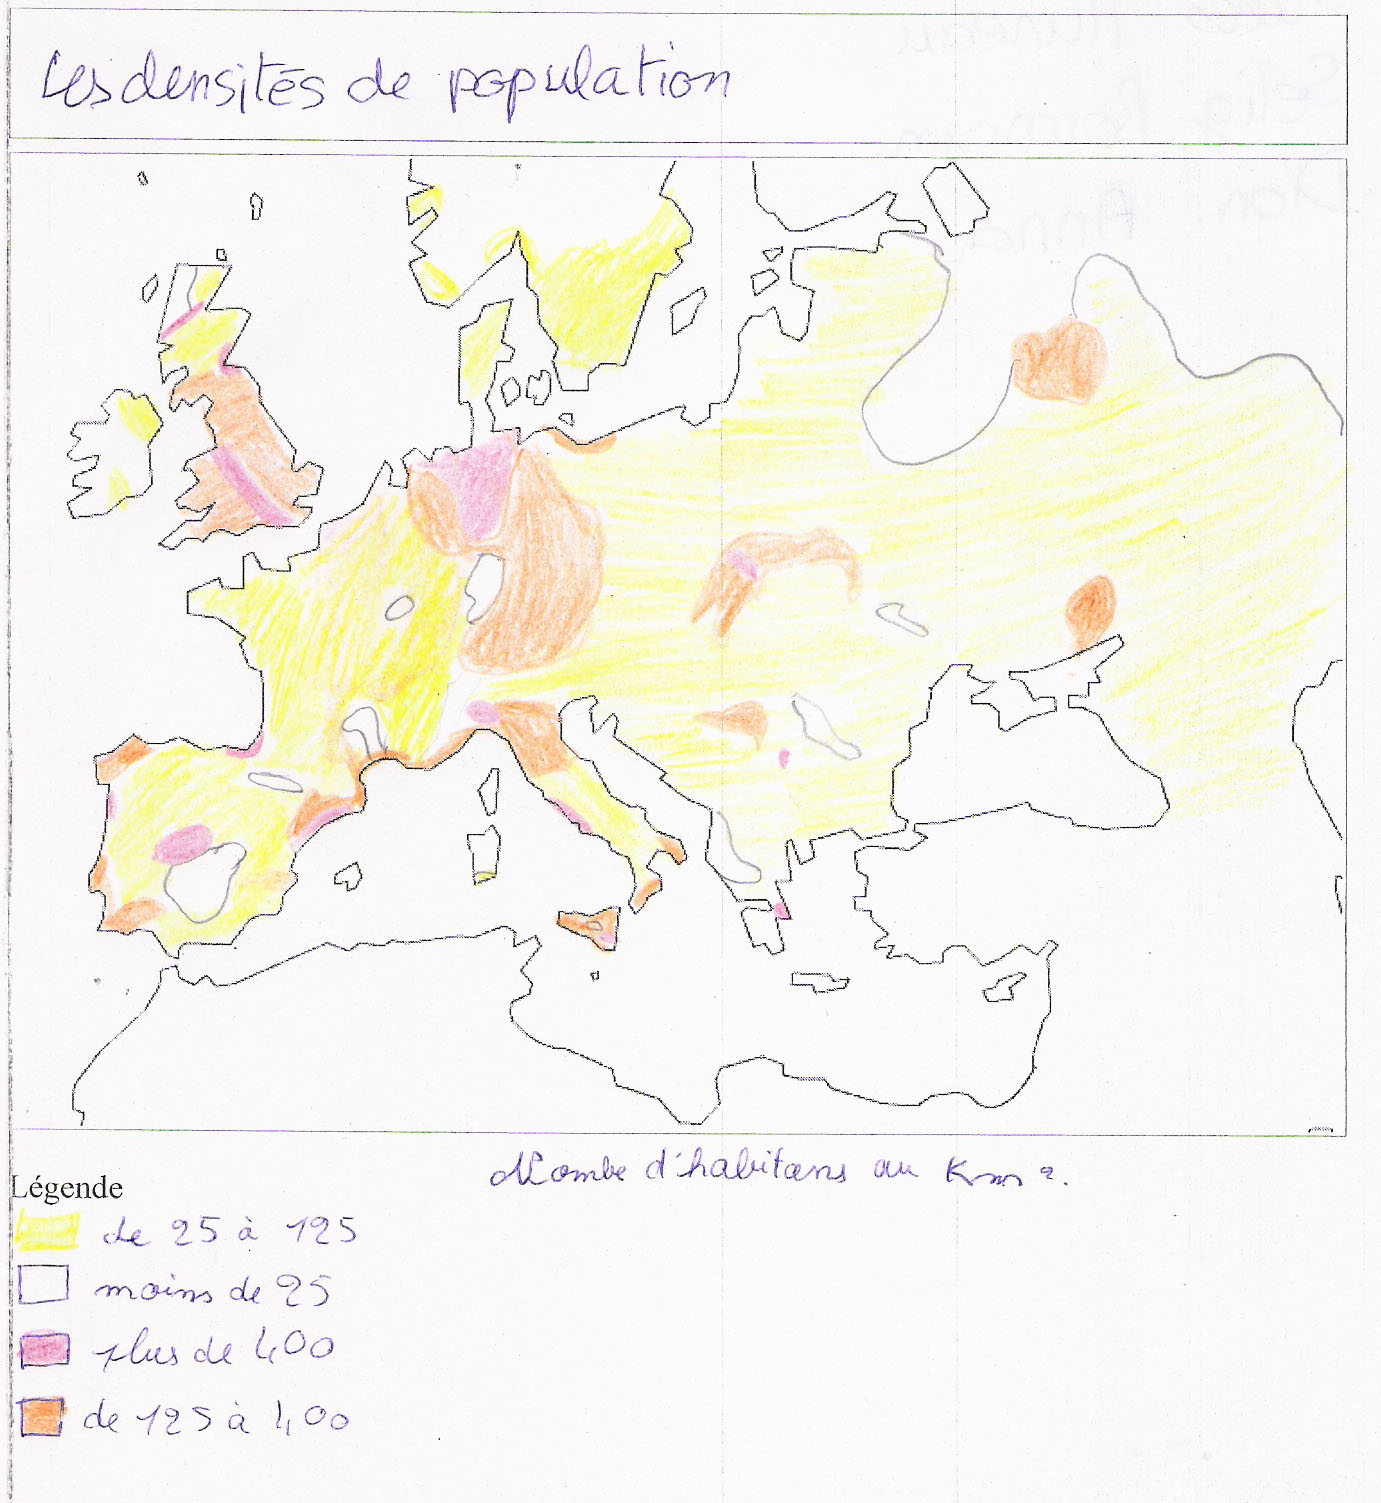 Les densités de population
Nombe d'habitans au Km².
Légende
de 25 à 125
moins de 25
plus de 400
de 125 à 400